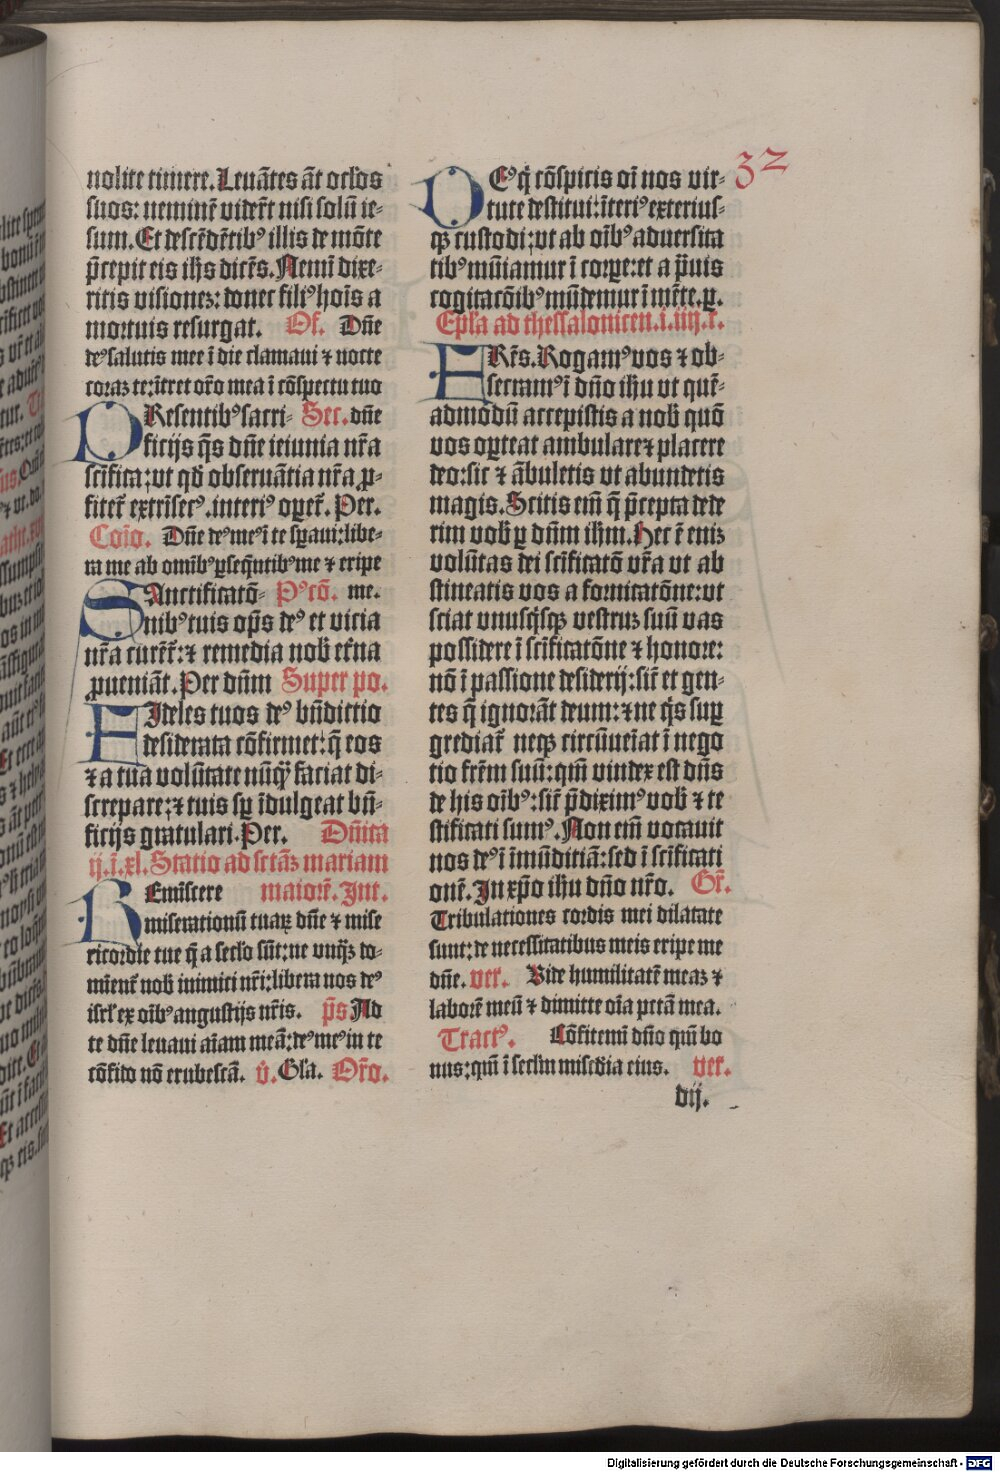 32
nolite timere. Leuātes āt oclos
suos: neminē viderūt nisi solū ie-
sum. Et descēdētibꝰ illis de mōte
p̄cepit eis ihs dicēs. Nemī dixe-
ritis visionez: donec filiꝰ hoīs a
mortuis resurgat. Of. Dn̄e
deꝰ salutis mee ī die clamaui ⁊ nocte
coraz te: ītret or̄o mea ī cōspectu tuo
PResentibꝰ sacri- Sec. dn̄e
ficijs q̄s dn̄e ieiunia nr̄a
scīfica: vt qd̄ obseruātia nr̄a ꝓ-
fitet̄ extrīsecꝰ. interiꝰ oꝑet̄. Per.
Coīo. Dn̄e deꝰ meꝰ ī te sꝑaui: libe-
ra me ab omībꝰ ꝑseq̄ntibꝰ me ⁊ eripe
SAnctificatō- Pꝰcō. me.
nibꝰ tuis op̄s deꝰ et vicia
nr̄a curēt̄: ⁊ remedia nob̄ et̄na
ꝓueniāt. Per dn̄m Super po.
FIdeles tuos deꝰ bn̄dictio
desiderata cōfirmet: q̄ eos
⁊ a tua volūtate nūq̄ faciat di-
screpare: ⁊ tuis sꝑ īdulgeat bn̄-
ficijs gratulari. Per. Dn̄ica
ij. ī. xl. Statio ad sctāz mariam
REmīscere maiorē. Int.
miserationū tuaꝝ dn̄e ⁊ mise
ricordie tue q̄ a seclo sūt: ne vnq̄z do-
mīent̄ nob̄ inimici nr̄i: libera nos deꝰ
isrl̄ ex oībꝰ angustijs nr̄is. p̄s Ad
te dn̄e leuaui aīam meā: deꝰ meꝰ in te
cōfido nō erubescā. v̄. Gl̄a. Or̄o.
DEꝰ q̄ cōspicis oī nos vir-
tute destitui: īteriꝰ exterius-
qꝫ custodi: vt ab oībꝰ aduersita
tibꝰ mūiamur ī corꝑe: et a p̄uis
cogitacōibꝰ mūdemur ī mēte. ꝑ.
Epl̄a ad thessalonicen. i. iiij. c.
FRēs. Rogamꝰ vos ⁊ ob-
secramꝰ ī dn̄o ihu vt quē-
admodū accepistis a nob̄ quō
vos oꝑteat ambulare ⁊ placere
deo: sic ⁊ ābuletis vt abundetis
magis. Scitis em̄ q̄ p̄cepta dede
rim vob̄ ꝑ dn̄m ihm. Hec ē eniz
volūtas dei scīficatō vr̄a vt ab
stineatis vos a fornicatōne: vt
sciat vnusq̄sqꝫ vestruz suū vas
possidere ī scīficatōne ⁊ honore:
nō ī passione desiderij: sic̄ et gen-
tes q̄ ignorāt deum: ⁊ ne q̄s suꝑ
grediat̄ neqꝫ circūueīat ī nego
tio frēm suū: qm̄ vindex est dn̄s
de his oībꝰ: sic̄ p̄diximꝰ vob̄ ⁊ te
stificati sumꝰ. Non em̄ vocauit
nos deꝰ ī īmūditiā: sed ī scīficati
onē. In xp̄o ihu dn̄o nr̄o. Gr̄.
Tribulationes cordis mei dilatate
sunt: de necessitatibus meis eripe me
dn̄e. ver. Vide humilitatē meaz ⁊
laborē meū ⁊ dimitte oīa pctā mea.
Tractꝰ. Cōfitemī dn̄o qm̄ bo
nus: qm̄ ī seclm̄ misc̄dia eius. ver.
dij.
Digitalisierung gefördert durch die Deutsche Forschungsgemeinschaft - DFG